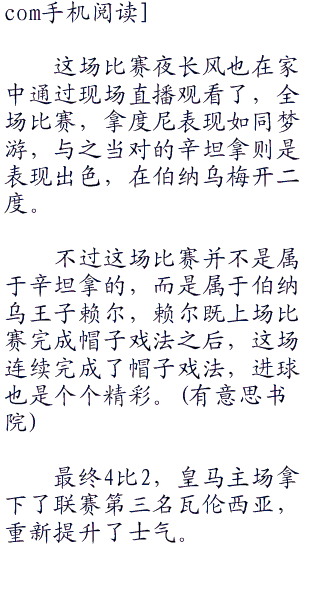 com手机阅读]
这场比赛夜长风也在家
中通过现场直播观看了，全
场比赛，拿度尼表现如同梦
游，与之当对的辛坦拿则是
表现出色，在伯纳乌梅开二
度。
不过这场比赛并不是属
于辛坦拿的，而是属于伯纳
乌王子赖尔，赖尔既上场比
赛完成帽子戏法之后，这场
连续完成了帽子戏法，进球
也是个个精彩。(有意思书
院)
最终4比2，皇马主场拿
下了联赛第三名瓦伦西亚，
重新提升了士气。